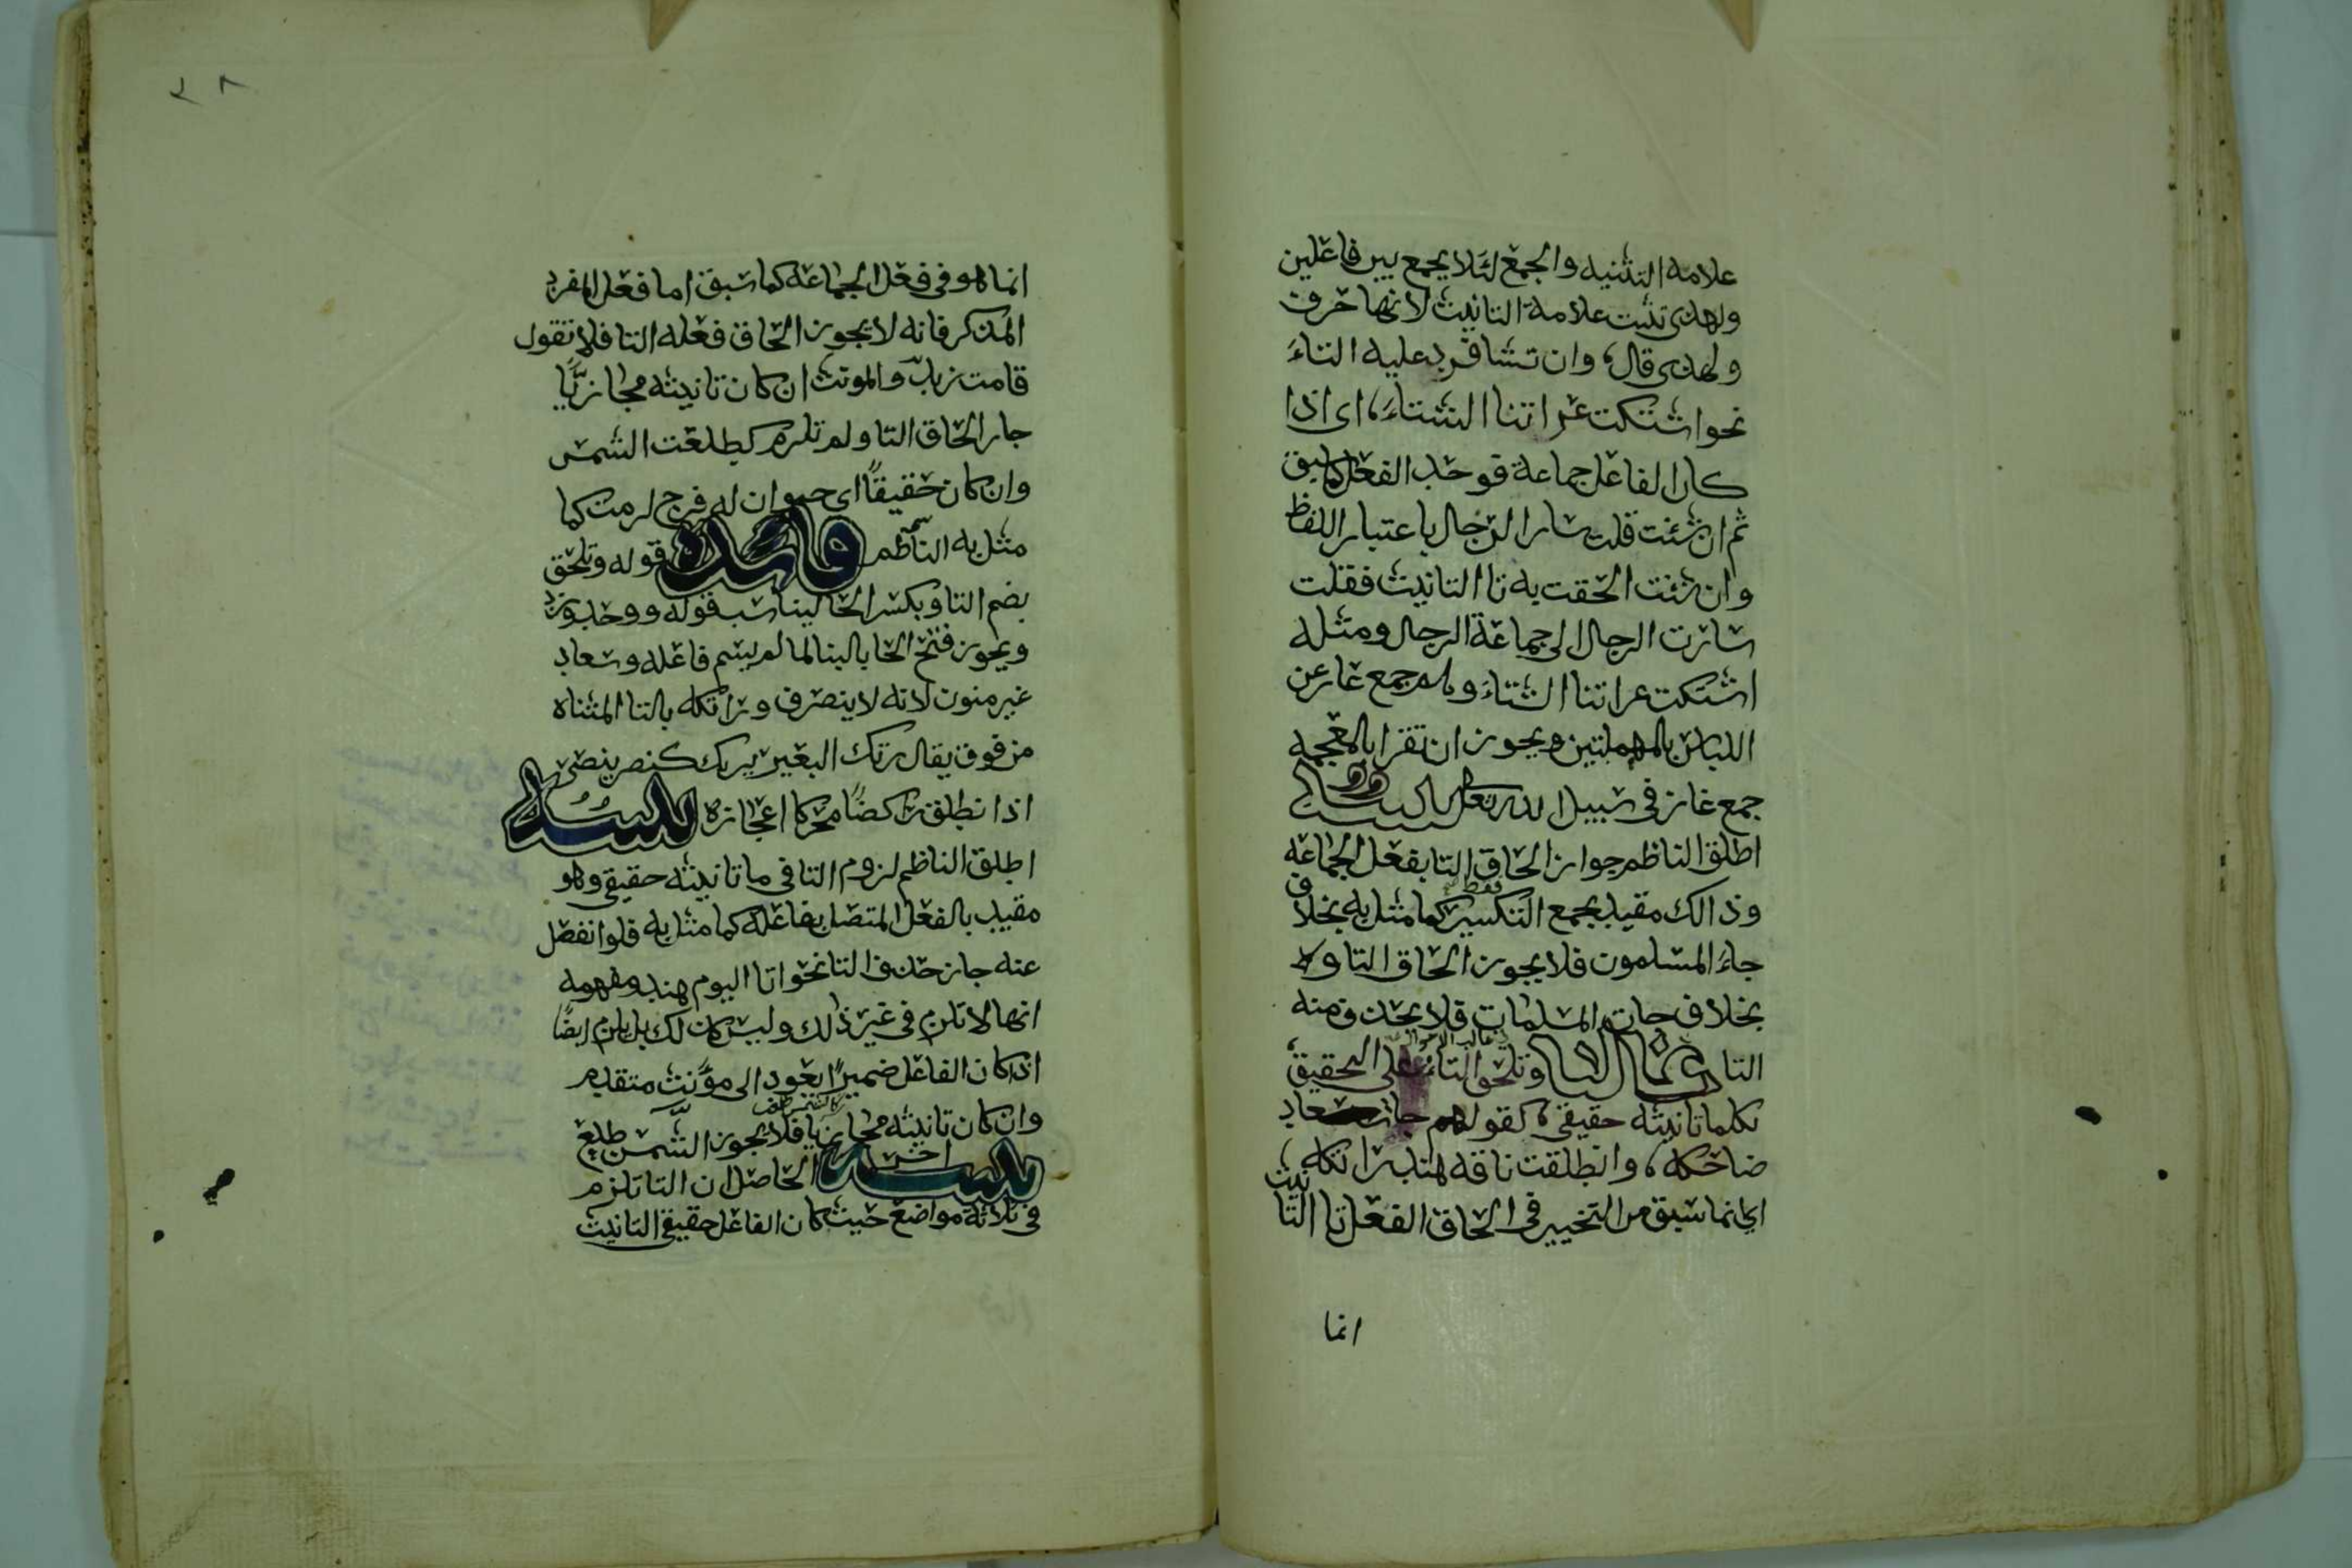 علامة التثنيه والجمع لئلا يجمع بين فاعلين
ولهذى تثبت علامة التانيث لانها حرف
ولهذى قال، وان تشا فزد عليه التاء
نحو اشتكت عراتنا الشتاء، اى اذا
كان الفاعل جماعة فوحد الفعل كما سبق
ثم ان شئت قلت سار الرجال باعتبار اللفظ
وان شئت الحقت به تا التانيث فقلت
سارت الرجال الى جماعة الرجال ومثله
اشتكت عراتنا الشتاء وهم جمع عار عن
اللباس بالمهملتين ويجوز ان تقرا بالمعجمه
جمع غاز فى سبيل الله تعالى
اطلق الناظم جواز الحاق التا بفعل الجماعة
وذالك مقيد بجمع التكسير فقط كما مثل به بخلاف
جاء المسلمون فلا يجوز الحاق التا ولا
بخلاف جات المسلمات فلا يحذف منه
التا وتلحق التاء على التحقيق
بكلما تانيثه حقيقى، كقولهم جات سعاد
ضاحكه، وانطلقت ناقه هند راتكه،
اى انما سبق من التخيير فى الحاق الفعل تا التانيث
انما
٣٨
انما هو فى فعل الجماعة كما سبق اما فعل المفرد
المذكر فانه لا يجوز الحاق فعله التا فلا تقول
قامت زيد والمونث ان كان تانيثه مجازيًّا
جاز الحاق التا ولم تلزم كطلعت الشمس
وان كان حقيقًا اى حيوان له فرج لزمت كما
مثل به الناظم فائده قوله وتلحق
بضم التا وبكسر الحا ليناسب قوله ووحد وزد
ويجوز فتح الحا بالبنا لما لم يسم فاعله وسعاد
غير منون لانه لا ينصرف وراتكه بالتا المثناه
من فوق يقال رتك البعير يرتك كنصر ينصر
اذا نطلق راكضًا محركا اعجازه تنبيه
اطلق الناظم لزوم التا فى ما تانيثه حقيقى وهو
مقيد بالفعل المتصل بفاعله كما مثل به فلو انفصل
عنه جاز حذف التا نحو اتا اليوم هند ومفهومه
انها لا تلزم فى غير ذلك وليس كذلك بل يلزم ايضًا
اذا كان الفاعل ضميرًا يعود الى مؤنث متقدم
وان كان تانيثه مجازيا فلا يجوز الشمس طلع
تنبيه اخر الحاصل ان التا تلزم
فى ثلاثة مواضع حيث كان الفاعل حقيقى التانيث